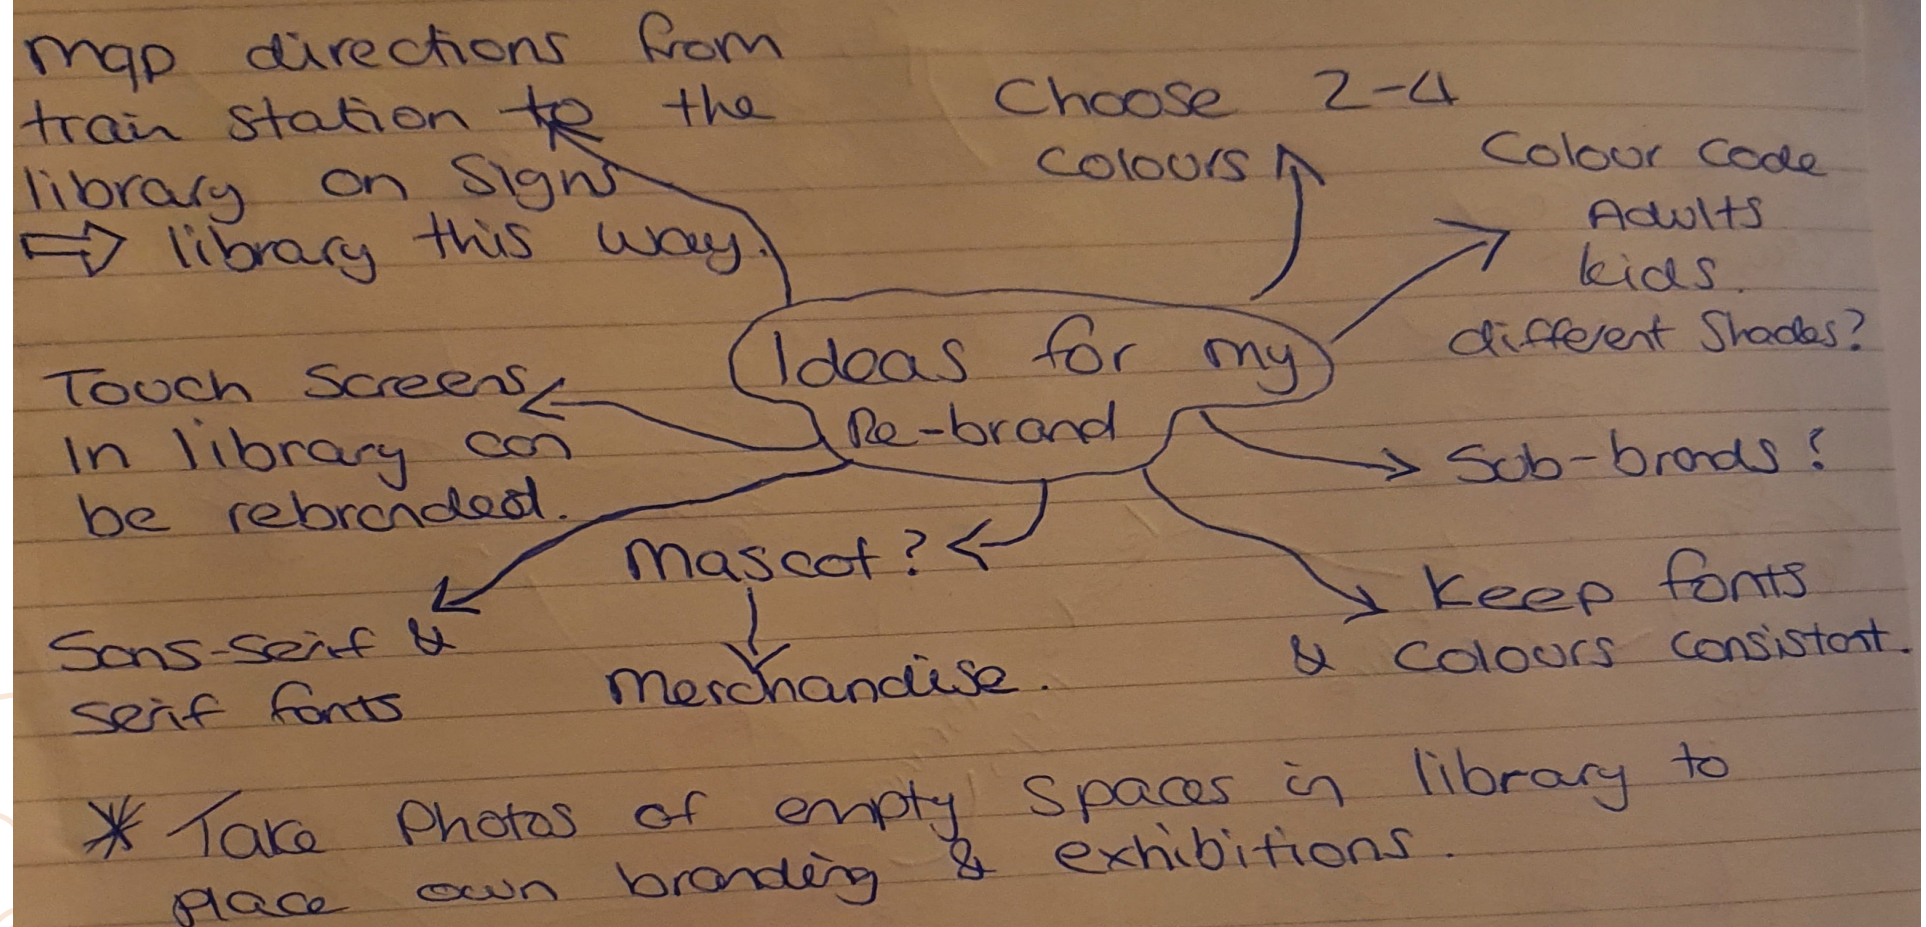 map directions from
train station to the
library on signs
⇨ library this way.
Choose 2-4
colours
Colour code
Adults
kids.
different shades?
Ideas for my
Re-brand
Touch screens
In library can
be rebranded.
Sub-brands?
Mascot?
Merchandise.
Keep fonts
& colours consistant.
Sans-serif &
serif fonts
* Take photos of empty spaces in library to
place own branding & exhibitions.